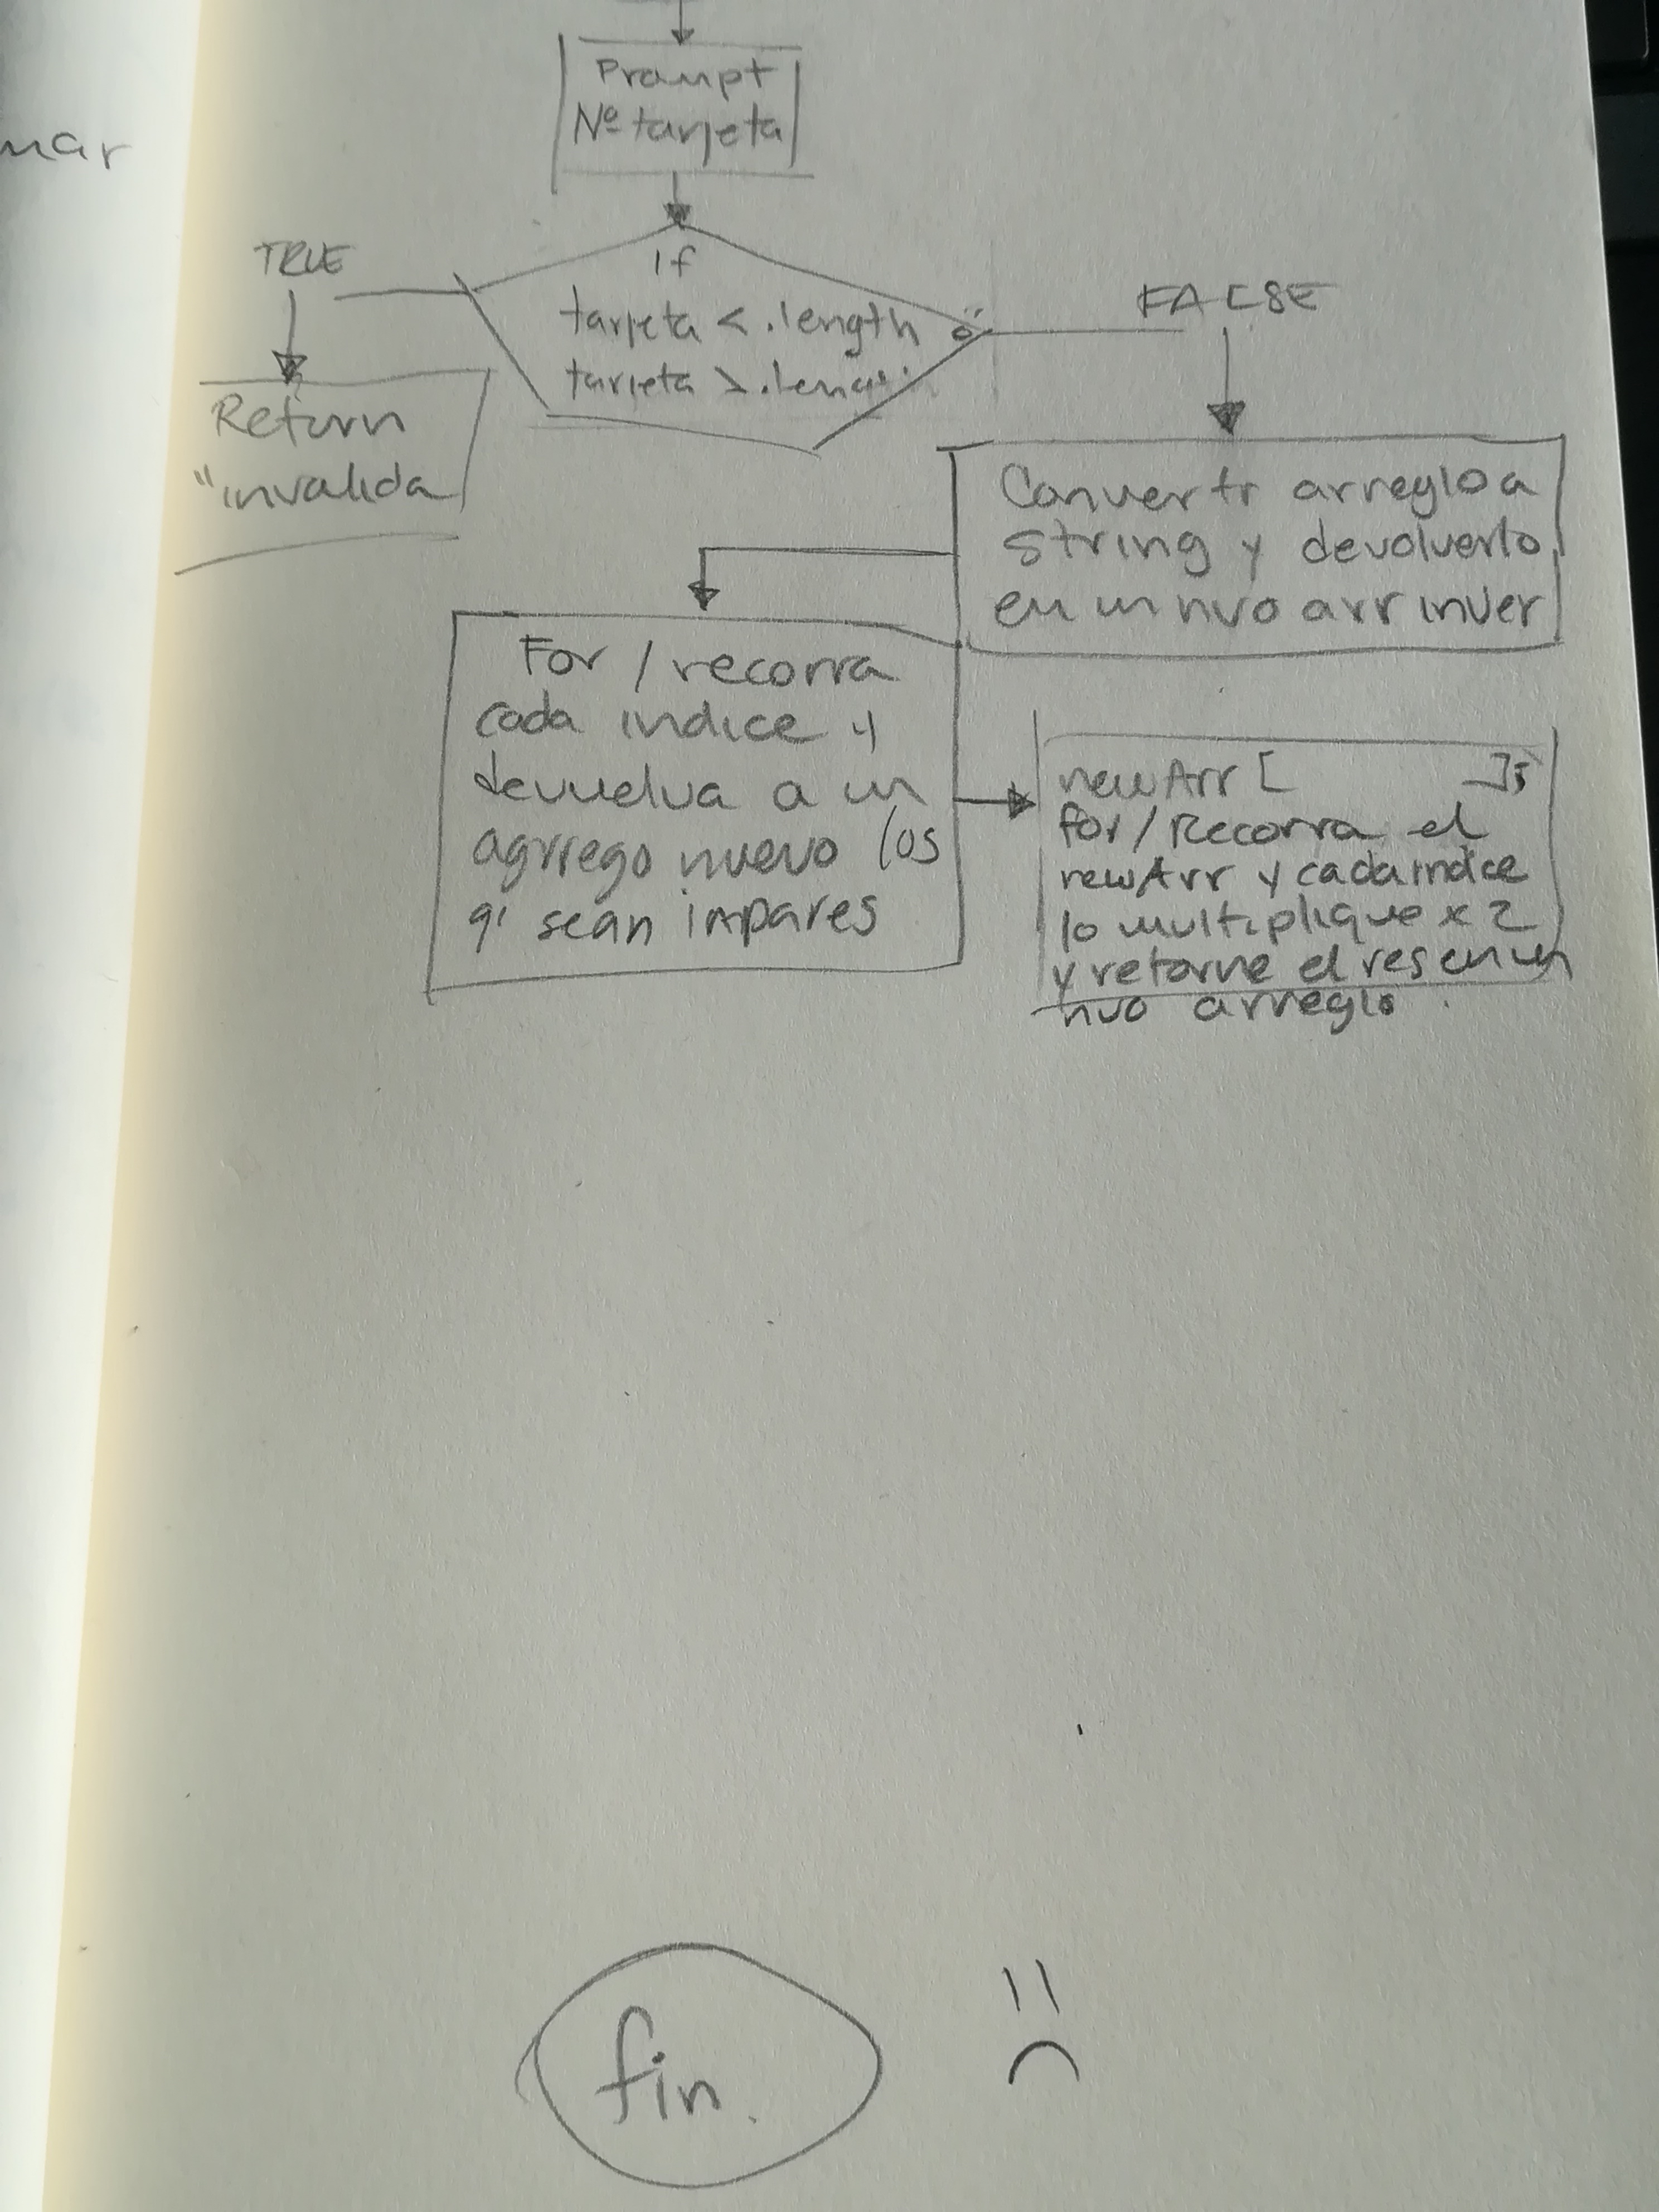 Prompt
Nº tarjeta
mar
TRUE
If
tarjeta < .length ó
tarjeta > .leng
FALSE
Return
"invalida
Convertir arreglo a
string y devolverlo
en un nvo arr inver
For / recorra
cada indice y
devuelva a un
agrrego nuevo los
q' sean impares
newArr [ ];
for/Recorra el
newArr y cada indice
lo multiplique x 2
y retorne el res en un
nvo arreglo.
fin.